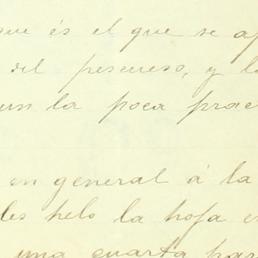 que és el que se ap
del pescueso, y la
un la poca prac
en general á la
les helo la hoja en
una cuarta par